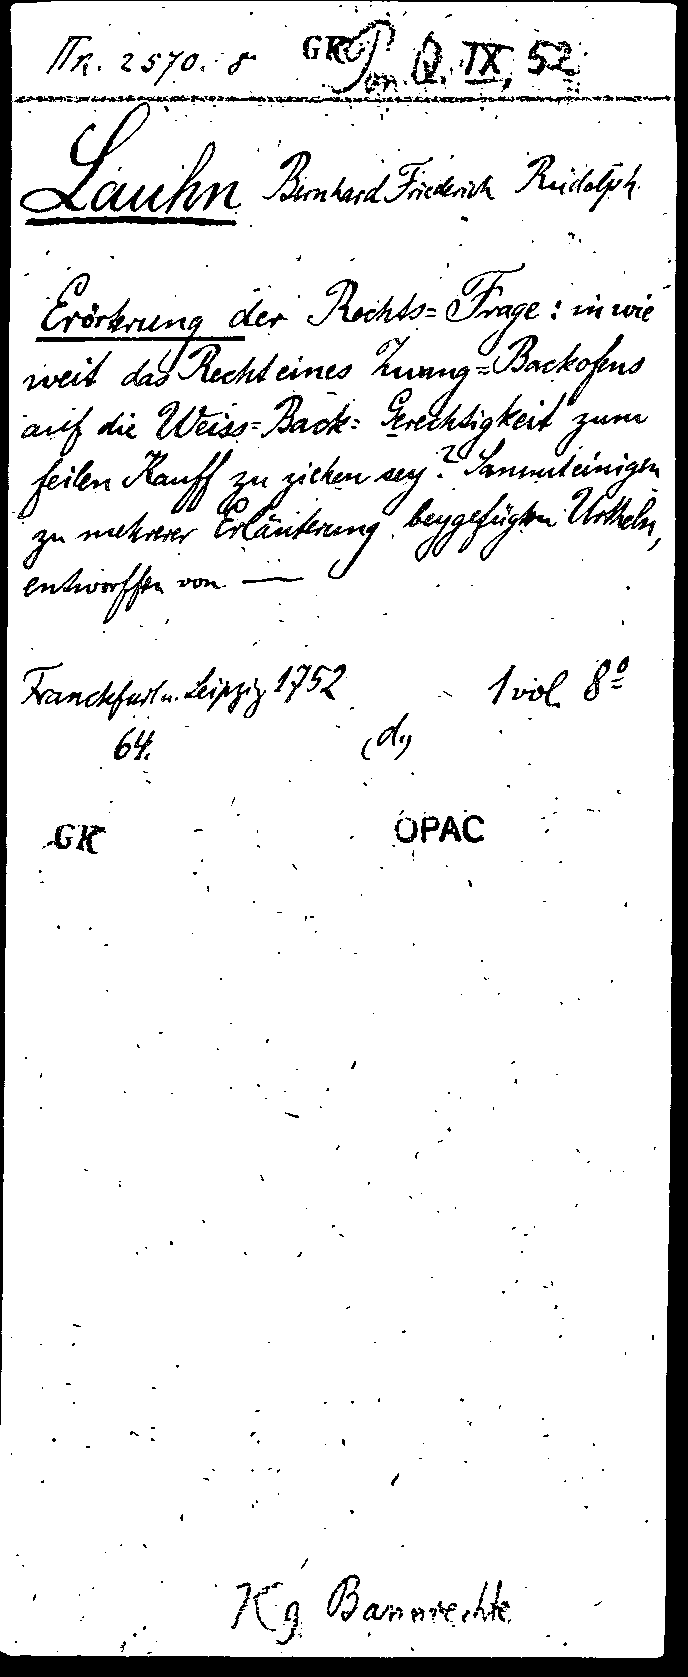 Πr. 2570. 8 GK Pon Q. IX, 52
Lauhn Bernhard Friederich Rudolph
Erörterung der Rechts=Frage: in wie
weit das Recht eines Zwang=Backofens
auf die Weiss=Back=Gerechtigkeit zum
feilen Kauff zu ziehen sey? Sammt einigen
zu mehrerer Erläuterung beygefügten Urtheln,
entworffen von —
Franckfurt u. Leipzig 1752 1 vol. 8º
64. (d.)
GK OPAC
Kg Bannrechte